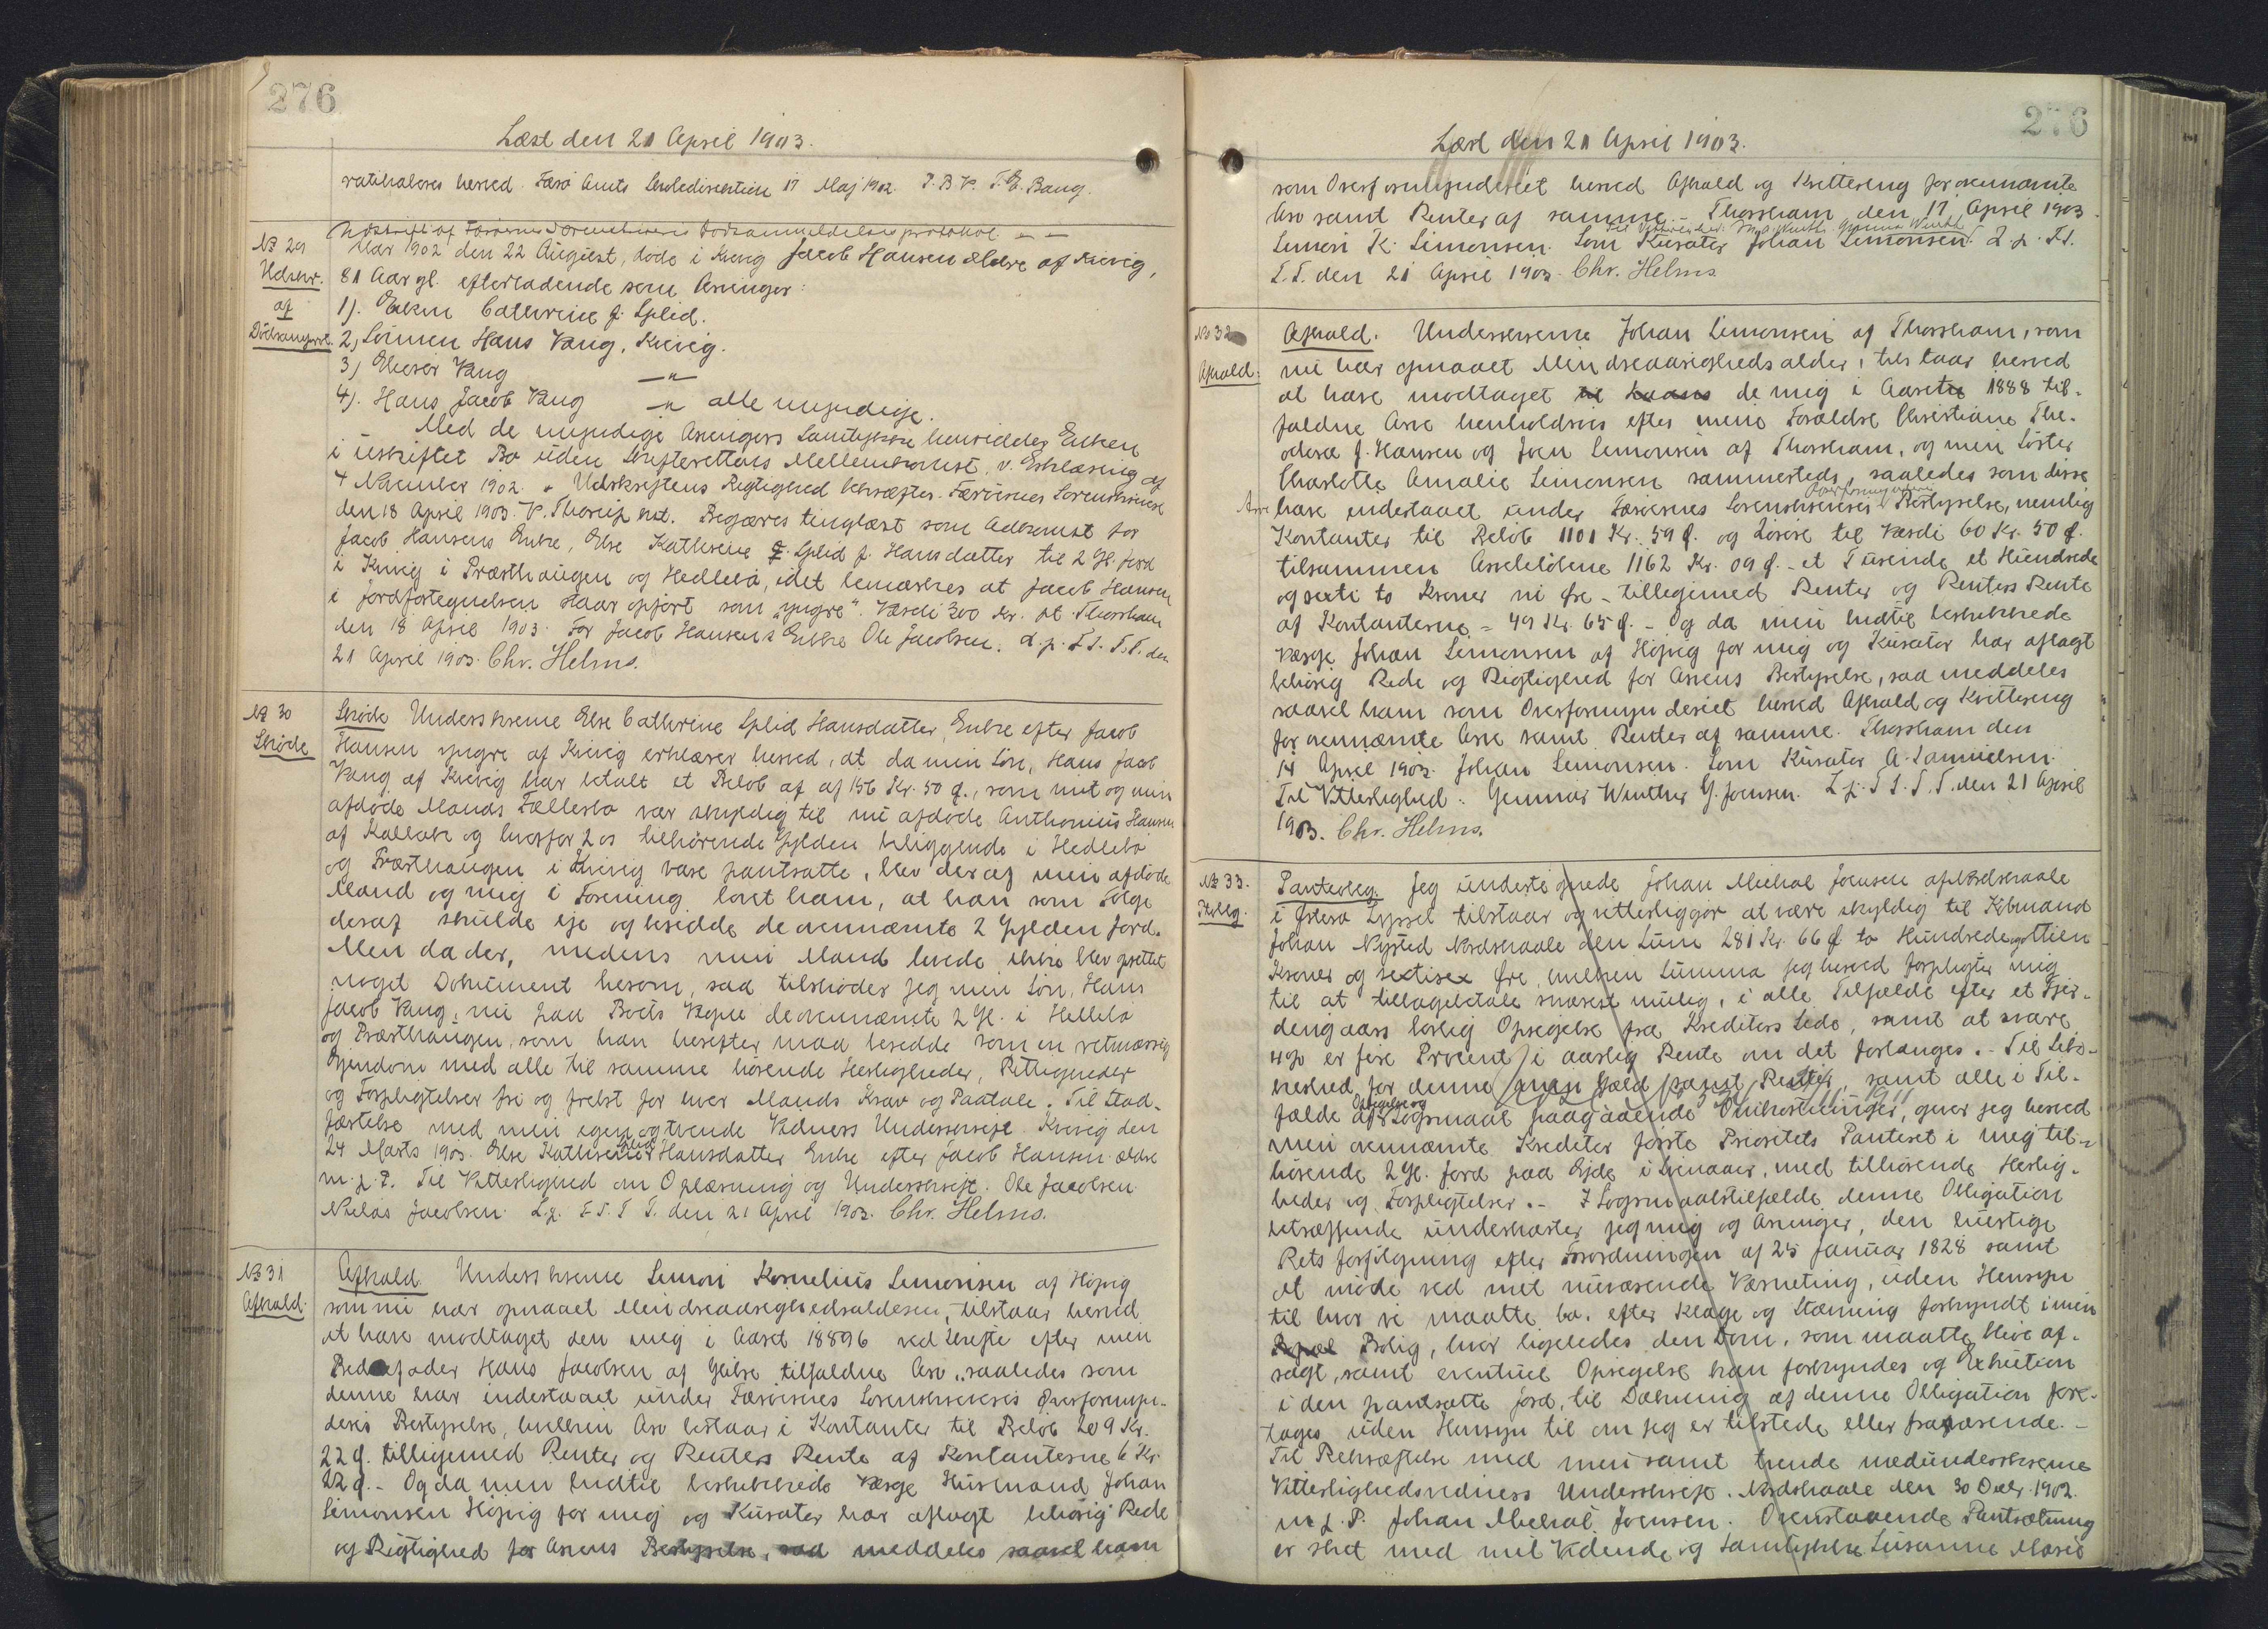 276
Læst den 21 April 1903.
ratihaberes herved. Færø Amts Skoledirektion 17 Maj 1902. P.B.V. T.E. Bang.
Udskrift af Færøernes Sorenskriveris Dødsanmeldelsesprotokol
№ 29
Udskr.
af
Dødsanmprot.
Aar 1902 den 22 August, døde i Kvivig Jacob Hansen ældre af Kvivig,
81 Aar gl. efterladende som Arvinger:
1). Enken Cathrine f. Splid.
2) Sønnen Hans Vang, Kvivig.
3) Elieser Vang —"—
4). Hans Jacob Vang —"— alle myndige.
Med de myndige Arvingers Samtykke hensidder Enken
i uskiftet Bo uden Skifterettens Mellemkomst, v. Erklæring af
4 November 1902. Udskriftens Rigtighed bekræfter. Færøernes Sorenskriveri
den 18 April 1903. V. Thorup kst. Begjæres tinglæst som Adkomst for
Jacob Hansens Enke, Else Kathrine f. Splid f. Hansdatter til 2 Gl. Jord
i Kvivig i Præsthaugen og Hedlebø, idet bemærkes at Jacob Hansen
i Jordfortegnelsen staar opført som "yngre". Værdi 300 Kr. pt. Thorshavn
den 18 April 1903. For Jacob Hansens Enke Ole Jacobsen. L. p. T.I. T.T. den
21 April 1903. Chr. Helms.
№ 30
Skøde
Skøde Underskrevne Else Cathrine Splid Hansdatter, Enke efter Jacob
Hansen yngre af Kvivig erklærer herved, at da min Søn, Hans Jacob
Vang af Kvivig har betalt et Beløb af af 156 Kr. 50 Ø., som mit og min
afdøde Mands Fællesbo var skyldig til nu afdøde Anthonius Hansen
af Kallbak og hvorfor 2 os tilhørende Gylden beliggende i Hedlebø
og Præsthaugen i Kvivig vare pantsatte, blev der af min afdøde
Mand og mig i Forening lovet ham, at han som Følge
deraf skulde eje og besidde de ovennævnte 2 Gylden Jord.
Men da der, medens min Mand levede ikke blev oprettet
noget Dokument herom, saa tilskøder jeg min Søn, Hans
Jacob Vang, nu paa Boets Vegne de ovennævnte 2 Gl. i Hellebø
og Præsthaugen, som han herefter maa besidde som en retmæssig
Ejendom med alle til samme hørende Herligheder, Rettigheder
og Forpligtelser fri og frelst for hver Mands Krav og Paatale. Til Stad-
fæstelse med min egen og tvende Vidners Underskrift. Kvivig den
24 Marts 1903. Else Kathrine Splid Hansdatter Enke efter Jacob Hansen ældre
m. f. P. Til Vitterlighed om Oplæsning og Underskrift. Ole Jacobsen
Niclas Jacobsen. L. p. T.I. T.T. den 21 April 1903. Chr. Helms.
№ 31
Afkald.
Afkald. Underskrevne Simon Kornelius Simonsen af Højvig
som nu har opnaaet Mindreaarighedsalderen, tilstaar herved
at have modtaget den mig i Aaret 18896 ved Skifte efter min
Bedstefader Hans Jacobsen af Glibre tilfaldne Arv, saaledes som
denne har indestaaet under Færøernes Sorenskriveris Overformyn-
deris Bestyrelse, hvilken Arv bestaar i Kontanter til Beløb 209 Kr.
22 Ø. tilligemed Renter og Renters Rente af Kontanterne 6 Kr.
22 Ø. - Og da min hidtil beskikkede Værge Husmand Johan
Simonsen Højvig for mig og Kurator har aflagt behørig Rede
og Rigtighed for Arvens Bestyrelse, saa meddeles saavel ham
276
Læst den 21 April 1903.
som Overformynderiet herved Afkald og Kvittering for ovennævnte
Arv samt Renter af samme. - Thorshavn den 17 April 1903
Til Vitterlighed: Gunnar Winther
Simon K. Simonsen. Som Kurator Johan Simonsen. L. p. T.I.
T.T. den 21 April 1903. Chr. Helms
№ 32
Afkald.
Afkald. Underskrevne Johan Simonsen af Thorshavn, som
nu har opnaaet Mindreaarighedsalder, tilstaar herved
at have modtaget til Laans de mig i Aarete 1888 til-
faldne Arve henholdsvis efter mine Forældre Christiane The-
odora f. Hansen og Joen Simonsen af Thorshavn, og min Søster
Charlotte Amalie Simonsen sammesteds, saaledes som disse
Arve have indestaaet under Færøernes Sorenskriveris Overformynderis Bestyrelse, nemlig
Kontanter til Beløb 1101 Kr. 59 Ø. og Løsøre til Værdi 60 Kr. 50 Ø.
tilsammen Arvebeløbene 1162 Kr. 09 Ø. - et Tusinde et Hundrede
og sexti to Kroner ni Øre - tilligemed Renter og Renters Rente
af Kontanterne = 49 Kr. 65 Ø. - Og da min hidtil beskikkede
Værge Johan Simonsen af Højvig for mig og Kurator har aflagt
behørig Rede og Rigtighed for Arvens Bestyrelse, saa meddeles
saavel ham som Overformynderiet herved Afkald og Kvittering
for ovennævnte Arve samt Renter af samme. Thorshavn den
14 April 1903. Johan Simonsen. Som Kurator A. Samuelsen.
Til Vitterlighed: Gunnar Winther G. Joensen. L. p. T.I. T.T. den 21 April
1903. Chr. Helms.
№ 33.
Ptoblg.
Panteoblg. Jeg undertegnede Johan Michal Joensen af Nordskaale
i Østerø Syssel tilstaar og vitterliggjør at være skyldig til Købmand
Johan Nysted Nordskaale den Sum 281 Kr. 66 Ø to Hundrede og ottien
Kroner og sextisex Øre, hvilken Summa jeg herved forpligter mig
til at tilbagebetale snarest mulig, i alle Tilfælde efter et Fjer-
dingaars lovlig Opsigelse fra Kreditors Side, samt at svare
4% er fire Procent i aarlig Rente om det forlanges. - Til Sik-
kerhed for denne min Gæld samt Renter, samt alle i Til-
fælde af Opsigelse og Søgsmaal paagaaende Omkostninger, giver jeg herved
min ovennævnte Kreditor første Prioritets Panteret i mig til-
hørende 2 Gl. Jord paa Ejde i Svinaair, med tilhørende Herlig-
heder og Forpligtelser. - I Søgsmaalstilfælde denne Obligation
betræffende underkaster jeg mig og Arvinger, den hurtige
Rets forfølgning efter Forordningen af 25 Januar 1828 samt
at møde ved mit nuværende Værneting, uden Hensyn
til hvor vi maatte bo, efter Klage og Stævning forkyndt i min
Bolig, hvor ligeledes den Dom, som maatte blive af-
sagt, samt eventuel Opsigelse kan forkyndes og Exkution
i den pantsatte Jord, til Dækning af denne Obligation fore-
tages uden Hensyn til om jeg er tilstede eller fraværende. -
Til Bekræftelse med min samt tvende medunderskrevne
Vitterlighedsvidners Underskrift. Nordskaale den 30 Decbr. 1902.
m. f. P. Johan Michal Joensen. Ovenstaaende Pantsætning
er sket med mit Vidende og Samtykke Susanne Marie